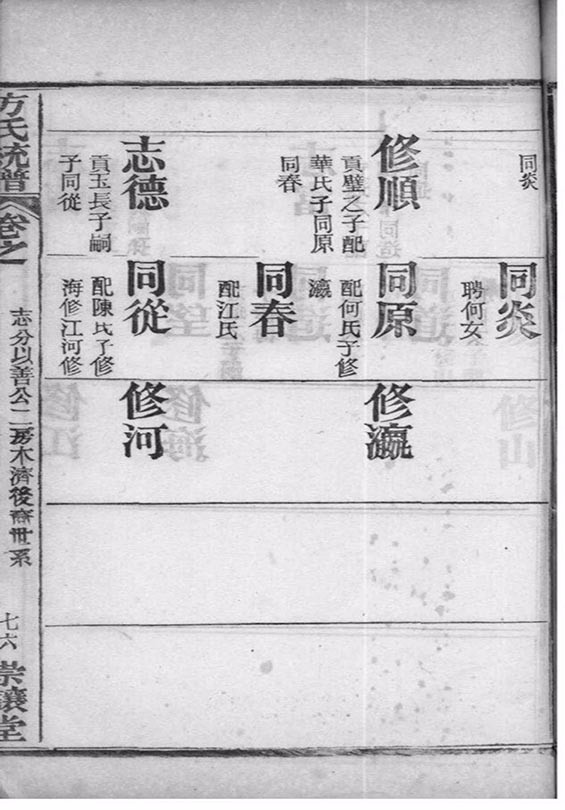 同炎
修順
貢璧之子配
華氏子同原
同春
志德
貢玉長子嗣
子同從
同炎
聘何女
同原
配何氏子修
瀛
同春
配江氏
同從
配陳氏子修
海修江河修
修瀛
修河
方氏統譜
卷之
志分以善公二房木濟後裔世系
七六
崇讓堂